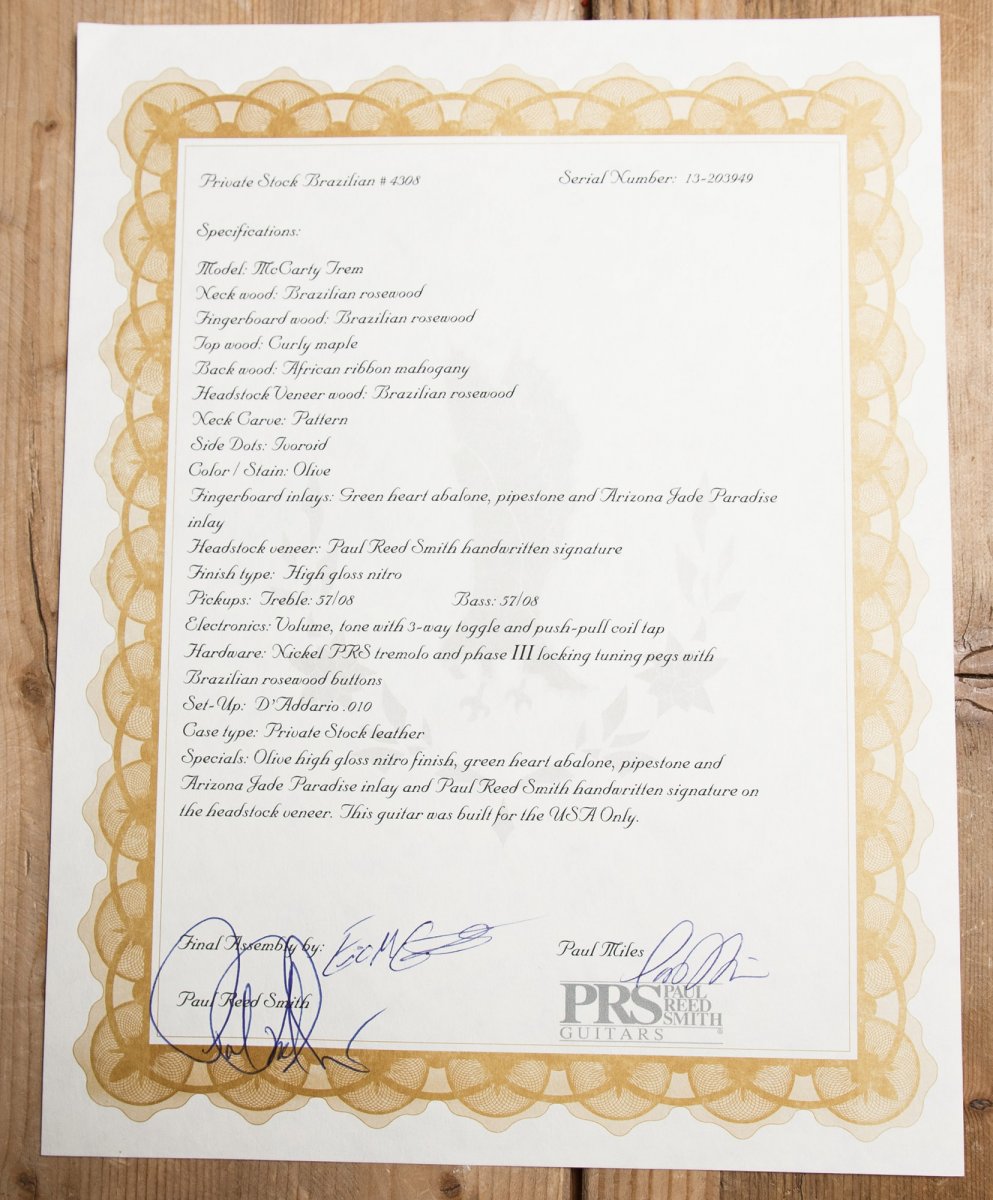 Private Stock Brazilian # 4308 Serial Number: 13-203949
Specifications:
Model: McCarty Trem
Neck wood: Brazilian rosewood
Fingerboard wood: Brazilian rosewood
Top wood: Curly maple
Back wood: African ribbon mahogany
Headstock Veneer wood: Brazilian rosewood
Neck Carve: Pattern
Side Dots: Ivoroid
Color / Stain: Olive
Fingerboard inlays: Green heart abalone, pipestone and Arizona Jade Paradise
inlay
Headstock veneer: Paul Reed Smith handwritten signature
Finish type: High gloss nitro
Pickups: Treble: 57/08 Bass: 57/08
Electronics: Volume, tone with 3-way toggle and push-pull coil tap
Hardware: Nickel PRS tremolo and phase III locking tuning pegs with
Brazilian rosewood buttons
Set-Up: D'Addario .010
Case type: Private Stock leather
Specials: Olive high gloss nitro finish, green heart abalone, pipestone and
Arizona Jade Paradise inlay and Paul Reed Smith handwritten signature on
the headstock veneer. This guitar was built for the USA Only.
Final Assembly by:
Paul Miles
Paul Reed Smith
PRS PAUL REED SMITH
GUITARS ®